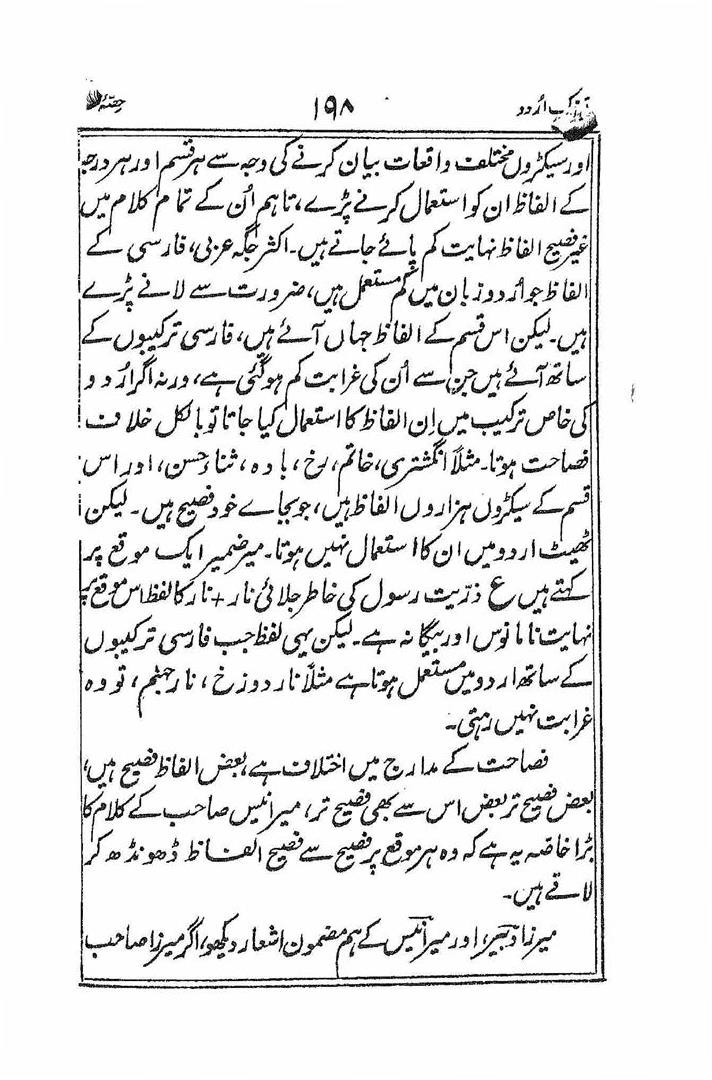 اردو ۱۹۸ حصّۂ
اور سیکڑوں مختلف واقعات بیان کرنے کی وجہ سے ہر قسم اور ہر درجہ
کے الفاظ ان کو استعمال کرنے پڑے، تاہم اُن کے تمام کلام میں
غیر فصیح الفاظ نہایت کم پائے جاتے ہیں۔ اکثر جگہ عربی، فارسی کے
الفاظ جو اُردو زبان میں کم مستعمل ہیں، ضرورت سے لانے پڑے
ہیں۔ لیکن اس قسم کے الفاظ جہاں آئے ہیں، فارسی ترکیبوں کے
ساتھ آئے ہیں جن سے اُن کی غرابت کم ہوگئی ہے، ورنہ اگر اُردو
کی خاص ترکیب میں اِن الفاظ کا استعمال کیا جاتا تو بالکل خلاف
فصاحت ہوتا۔ مثلاً انگشتری، خاتم، رخ، بادہ، ثناء، حسن، اور اس
قسم کے سیکڑوں ہزاروں الفاظ ہیں، جو بجاے خود فصیح ہیں۔ لیکن
ٹھیٹ اردو میں ان کا استعمال نہیں ہوتا۔ میر ضمیر ایک موقع پر
کہتے ہیں ع ذرّیت رسول کی خاطر جلائی نار + نار کا لفظ اس موقع پر
نہایت نامانوس اور بیگانہ ہے۔ لیکن یہی لفظ جب فارسی ترکیبوں
کے ساتھ اردو میں مستعمل ہوتا ہے مثلاً نار دوزخ، نار جہنم، تو وہ
غرابت نہیں رہتی۔
فصاحت کے مدارج میں اختلاف ہے، بعض الفاظ فصیح ہیں،
بعض فصیح تر بعض اس سے بھی فصیح تر، میر انیس صاحب کے کلام کا
بڑا خاصّہ یہ ہے کہ وہ ہر موقع پر فصیح سے فصیح الفاظ ڈھونڈھ کر
لاتے ہیں۔
میرزا دبیر، اور میر انیس کے ہم مضمون اشعار دیکھو، اگر میرزا صاحب